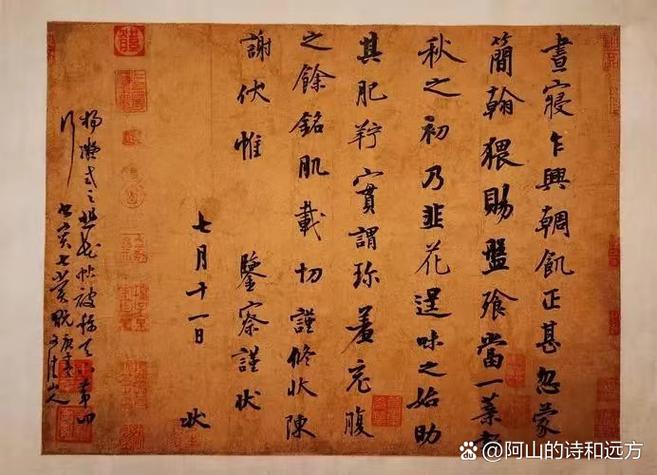 晝寢乍興輖飢正甚忽蒙
簡翰猥賜盤飱當一葉報
秋之初乃韭花逞味之始助
其肥羜實謂珍羞充腹
之餘銘肌載切謹修狀陳
謝伏惟 鑒察謹狀
七月十一日 狀
楊凝式之韭花帖被稱天下第四
行
@阿山的诗和远方